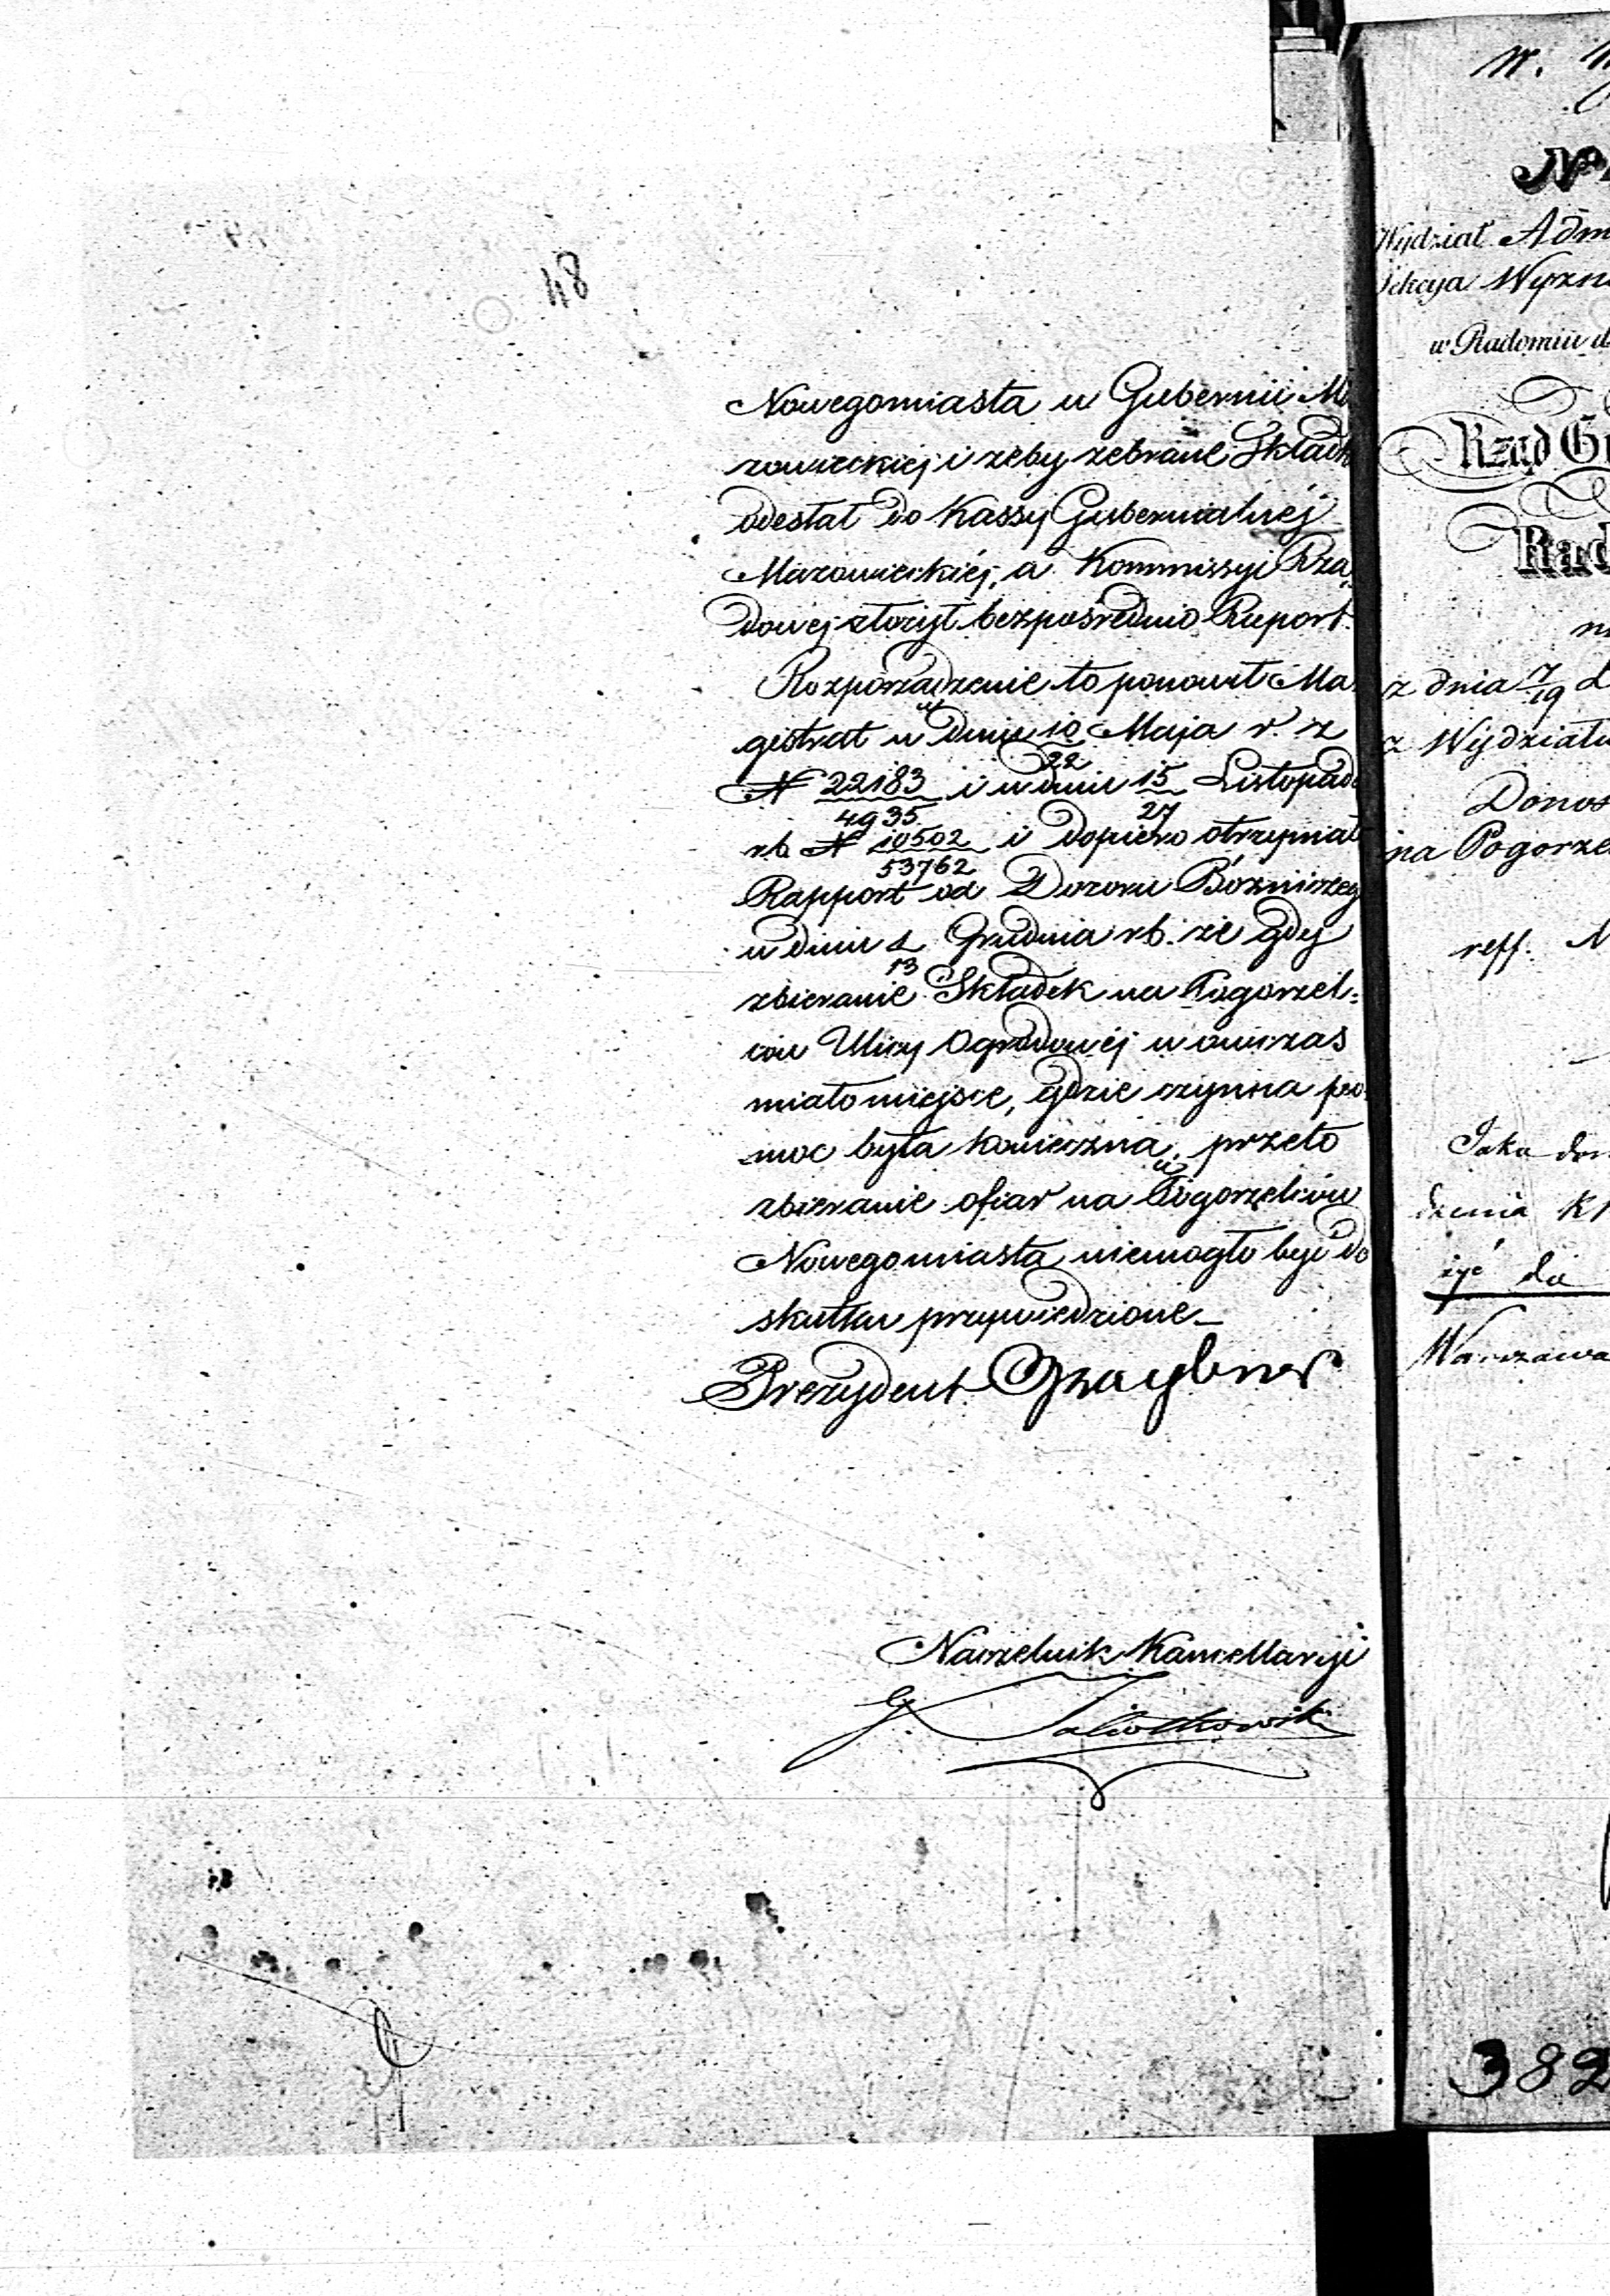 48
Nowegomiasta w Gubernii Ma
zowieckiej i żeby zebrane Składk
odesłał do Kassy Gubernialnéj
Mazowieckiéj, a Kommissyi Rzą
dowej złożył bezpośrednio Raport.
Rozporządzenie to ponowił Ma
gistrat w dniu 10/22 Maja r. z
N 22183/4935 i w dniu 15/27 Listopada
rb. N 10502/53762 i dopiero otrzymał
Rapport od Dozoru Bóżniczeg
w dniu 1/13 Grudnia rb. że gdy
zbieranie Składek na Pogorzel-
ców Ulicy Ogrodowéj w ówczas
miało miejsce, gdzie czynna po-
moc była konieczna, przeto
zbieranie ofiar na Pogorzelców
Nowegomiasta niemogło być do
skutku przywiedzione
Prezydent
Naczelnik Kancellaryi
Nº
Wydział Adm
Sekcya Wyzn
w Radomiu d
Rząd Gu
Rad
z dnia 7/19
z Wydziału
Donos
na Pogorze
reff.
Jako
żyć do
Warszawa
382